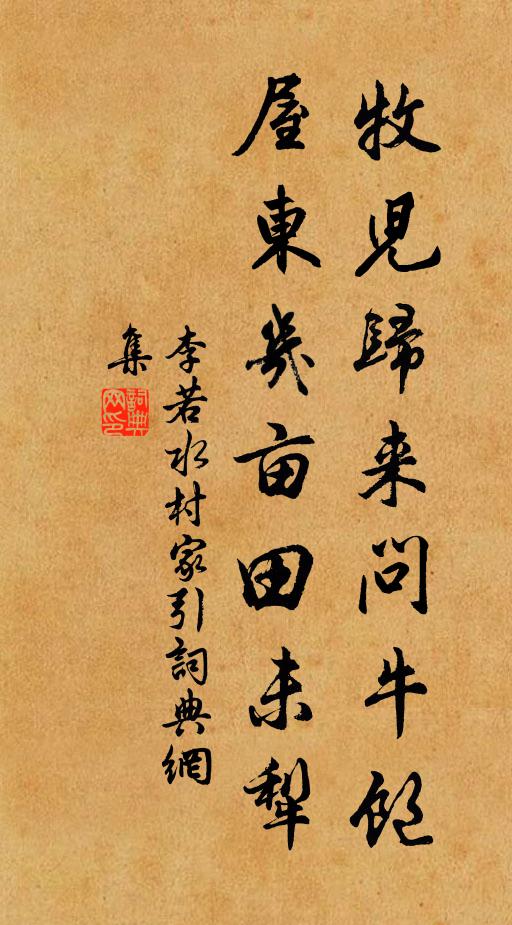 牧児歸来問牛飽
屋東幾亩田未犁
李若水村家引詞典網
集
詞典
网印